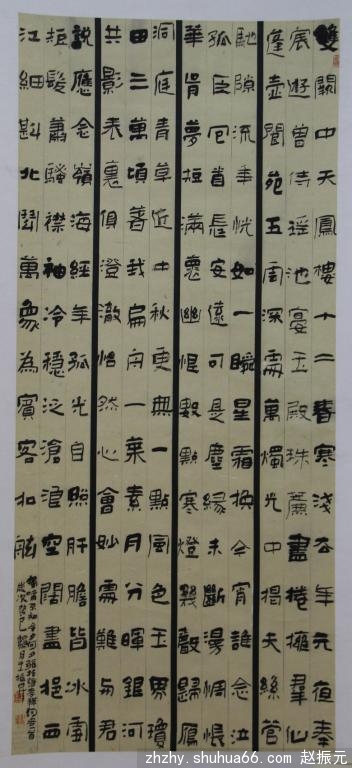 雙闕中天鳳樓十二春寒淺去年元夜奉
宸遊曾侍瑶池宴玉殿珠簾盡捲擁群仙
蓬壺閬苑五雲深處萬燭光中揭天絲管
馳隙流年恍如一瞬星霜換今宵誰念泣
孤臣回首長安遠可是塵緣未斷惆悵
華胥夢短滿懷幽恨數點寒燈幾聲歸雁
洞庭青草近中秋更無一點風色玉界瓊
田三萬頃著我扁舟一葉素月分暉銀河
共影表裏俱澄澈怡然心會妙處難與君
說應念嶺海經年孤光自照肝膽皆冰雪
短髮蕭騷襟袖冷穩泛滄浪空闊盡挹西
江細斟北鬥萬象為賓客扣舷
zhzhy.shuhua66.com 赵振元